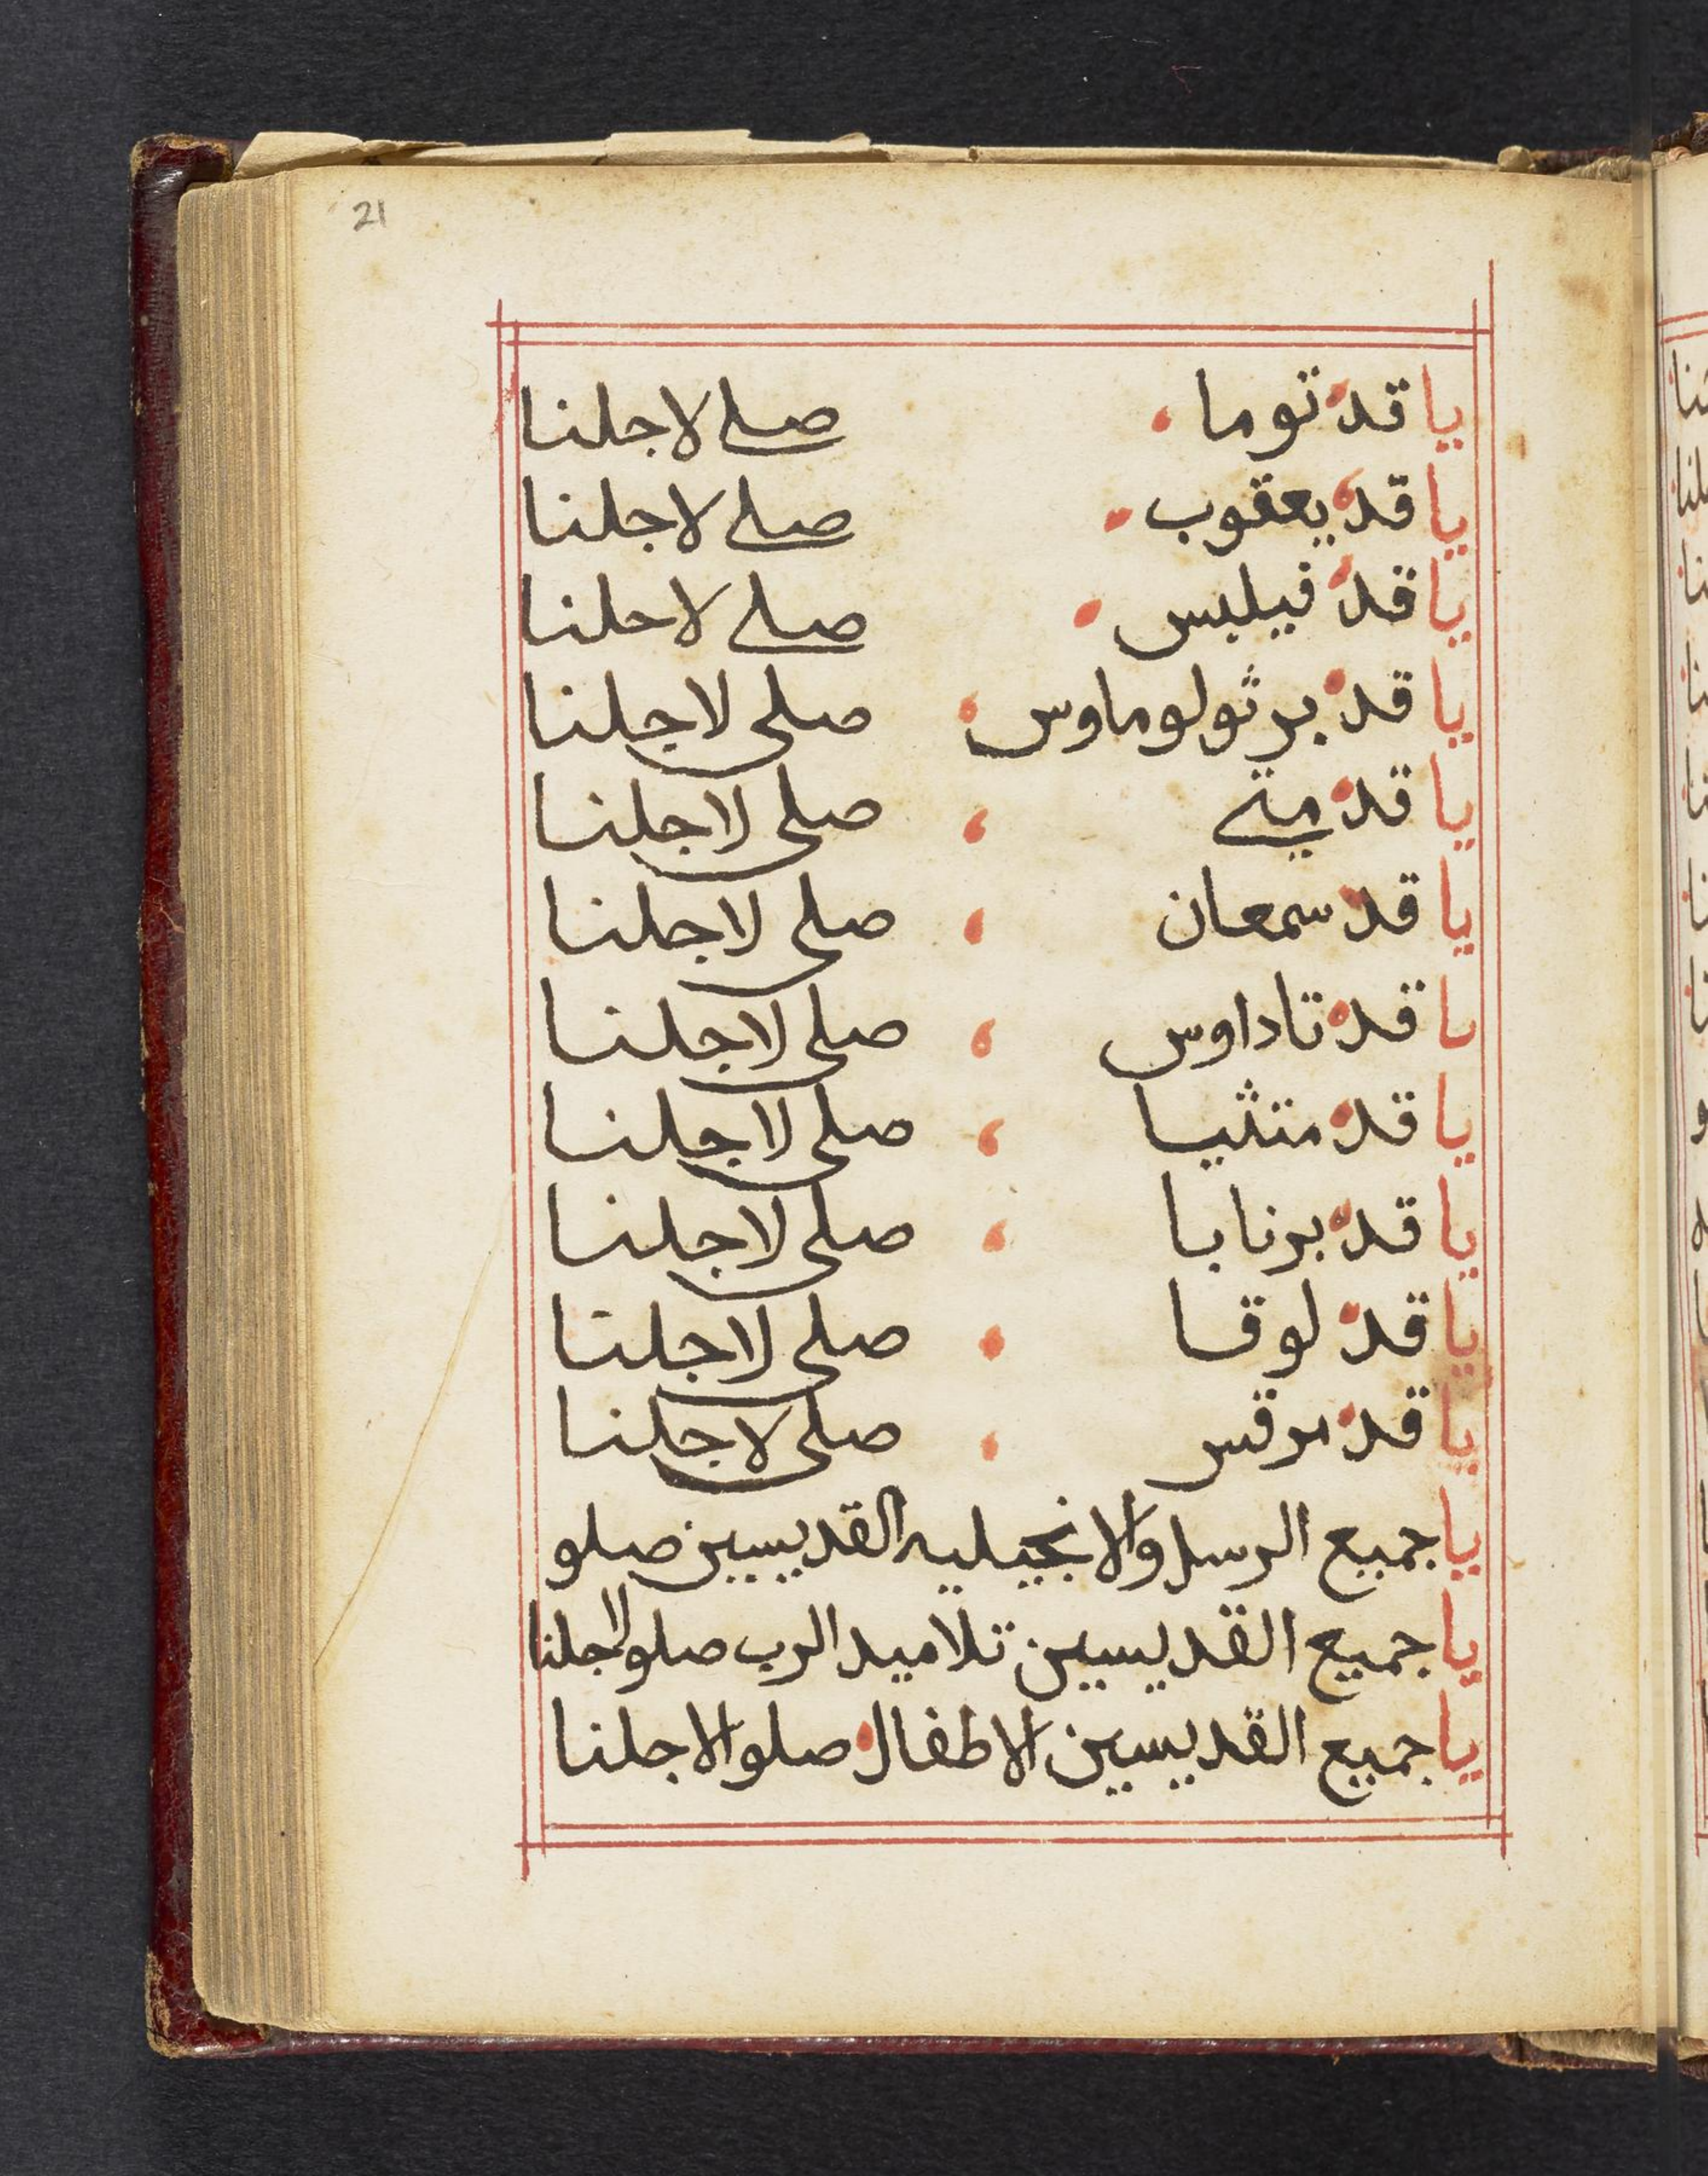 21
يا قد توما صلي لاجلنا
يا قد يعقوب صلي لاجلنا
يا قد فيلبس صلي لاحلنا
يا قد برثولوماوس صلي لاجلنا
يا قد متي صلي لاجلنا
يا قد سمعان صلي لاجلنا
يا قد تاداوس صلي لاجلنا
يا قد متثيا صلي لاجلنا
يا قد برنابا صلي لاجلنا
يا قد لوقا صلي لاجلنا
يا قد مرقس صلي لاجلنا
يا جميع الرسل والانجيليه القديسين صلو
يا جميع القديسين تلاميد الرب صلو لاجلنا
يا جميع القديسين الاطفال صلوا لاجلنا